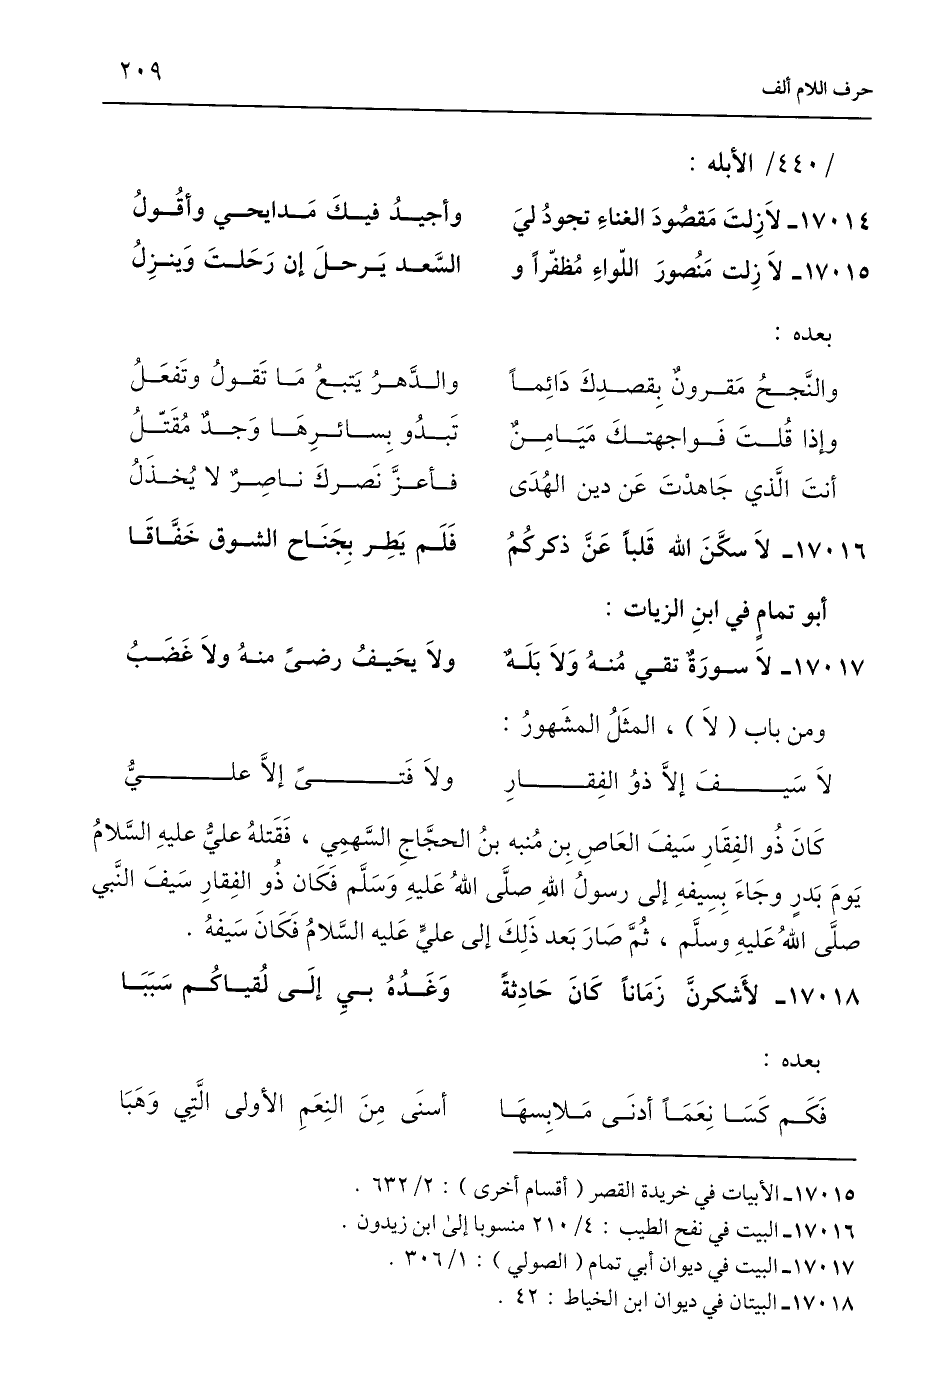 حرف اللام ألف ٢٠٩
/ ٤٤٠/ الأبله :
١٧٠١٤ـ لاَزِلتَ مَقصُودَ الغناءِ تجودُ ليَ وأجيـدُ فيـكَ مَـدايحـي وأقُـولُ
١٧٠١٥ـ لاَ زِلت مَنُصورَ اللّواءِ مُظفّراً و السَّعـد يَـرحـلَ إن رَحَلـتَ وَينـزِلُ
بعده :
والنَّجـحُ مَقـرونٌ بِقصـدِكَ دَائِمـاً والـدَّهـرُ يَتبـعُ مَـا تَقولُ وتَفعَـلُ
وإذا قُلـتَ فَـواجهتـكَ مَيَـامِـنٌ تَبـدُو بِسـائـرِهَـا وَجـدٌ مُقتَـلُ
أنتَ الَّذي جَاهدْتَ عَن دين الهُدَى فـأعـزَّ نَصـركَ نـاصِـرٌ لا يُخـذَلُ
١٧٠١٦ـ لاَ سكَّنَ الله قلباً عَنَّ ذكركُمُ فَلَـم يَطِـر بِجَنَـاحِ الشـوق خَفَّـاقَـا
أبو تمامٍ في ابنِ الزيات :
١٧٠١٧ـ لاَ سـورَةٌ تقـي مُنـهُ وَلاَ بَلَـهٌ ولاَ يحَيـفُ رضـىً منـهُ ولاَ غَضَـبُ
ومن باب ( لاَ ) ، المثَلُ المشَهورُ :
لاَ سَيـفَ إلاَّ ذوُ الفِقـارِ ولاَ فَتـىً إلاَّ علـيُّ
كَانَ ذُو الفِقَارِ سَيفَ العَاصِ بِن مُنبه بنُ الحجَّاجِ السَّهمِي ، فَقَتلهُ عليُّ عليهِ السَّلامُ
يَومَ بَدرٍ وجَاءَ بِسِيفهِ إلى رسولُ اللهِ صلَّى اللهُ عَليهِ وَسَلَّم فَكَان ذُو الفِقارِ سَيفَ النَّبي
صلَّى اللهُ عَليهِ وسلَّم ، ثُمَّ صَارَ بَعد ذَلِكَ إلى عليٍّ عَليه السَّلامُ فَكَانَ سَيفهُ .
١٧٠١٨ـ لأشكرنَّ زَمَاناً كَانَ حَادِثةً وَغَـدُهُ بـيِ إلَـى لُقيـاكُـم سَبَبَـا
بعده :
فَكَـم كَسَـا نِعَمَـاً أدنَـى مَـلابِسهَـا أسنَى مِنَ النِعَمِ الأولى الَّتِي وَهَبَا
١٧٠١٥ـ الأبيات في خريدة القصر ( أقسام أخرى ) : ٢/ ٦٣٢ .
١٧٠١٦ـ البيت في نفح الطيب : ٤/ ٢١٠ منسوبا إلىٰ ابن زيدون .
١٧٠١٧ـ البيت في ديوان أبي تمام ( الصولي ) : ١/ ٣٠٦ .
١٧٠١٨ـ البيتان في ديوان ابن الخياط : ٤٢ .